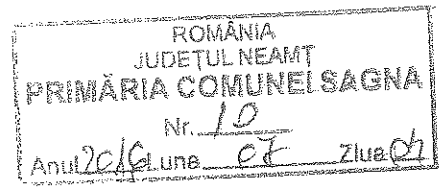 ROMÂNIA
JUDEŢUL NEAMŢ
PRIMĂRIA COMUNEI SAGNA
Nr. 10
Anul 2016 Luna 07 Ziua 04